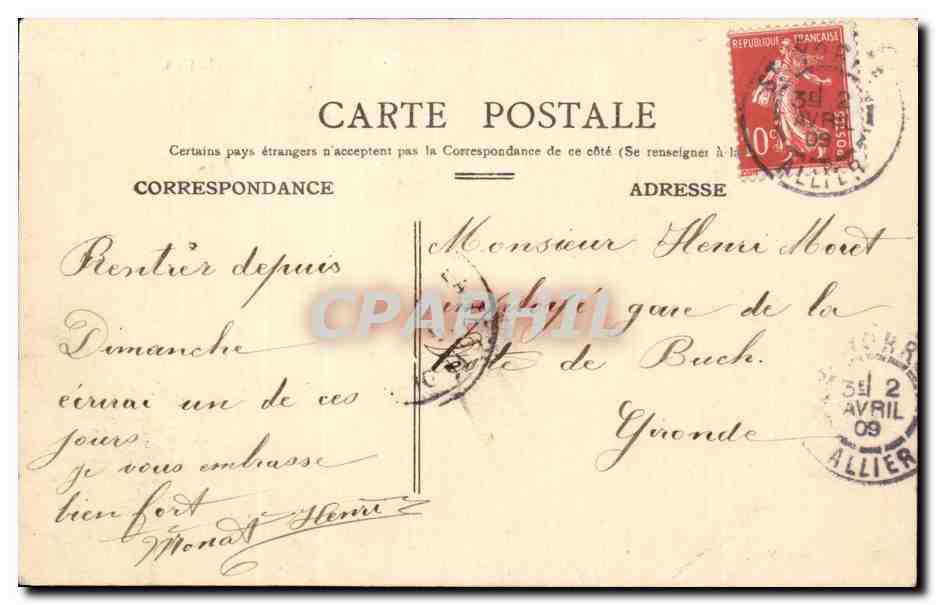 CARTE POSTALE
Certains pays étrangers n'acceptent pas la Correspondance de ce côté (Se renseigner à la
CORRESPONDANCE
ADRESSE
REPUBLIQUE FRANÇAISE
10c
POSTES
3E 2
AVRIL
09
ALLIER
Rentrer depuis
Dimanche
écrirai un de ces
jours
je vous embrasse
bien fort
Monat Henri
Monsieur Henri Moret
employé gare de la
Teste de Buch.
Gironde
CPAPHIL
3E 2
AVRIL
09
ALLIER